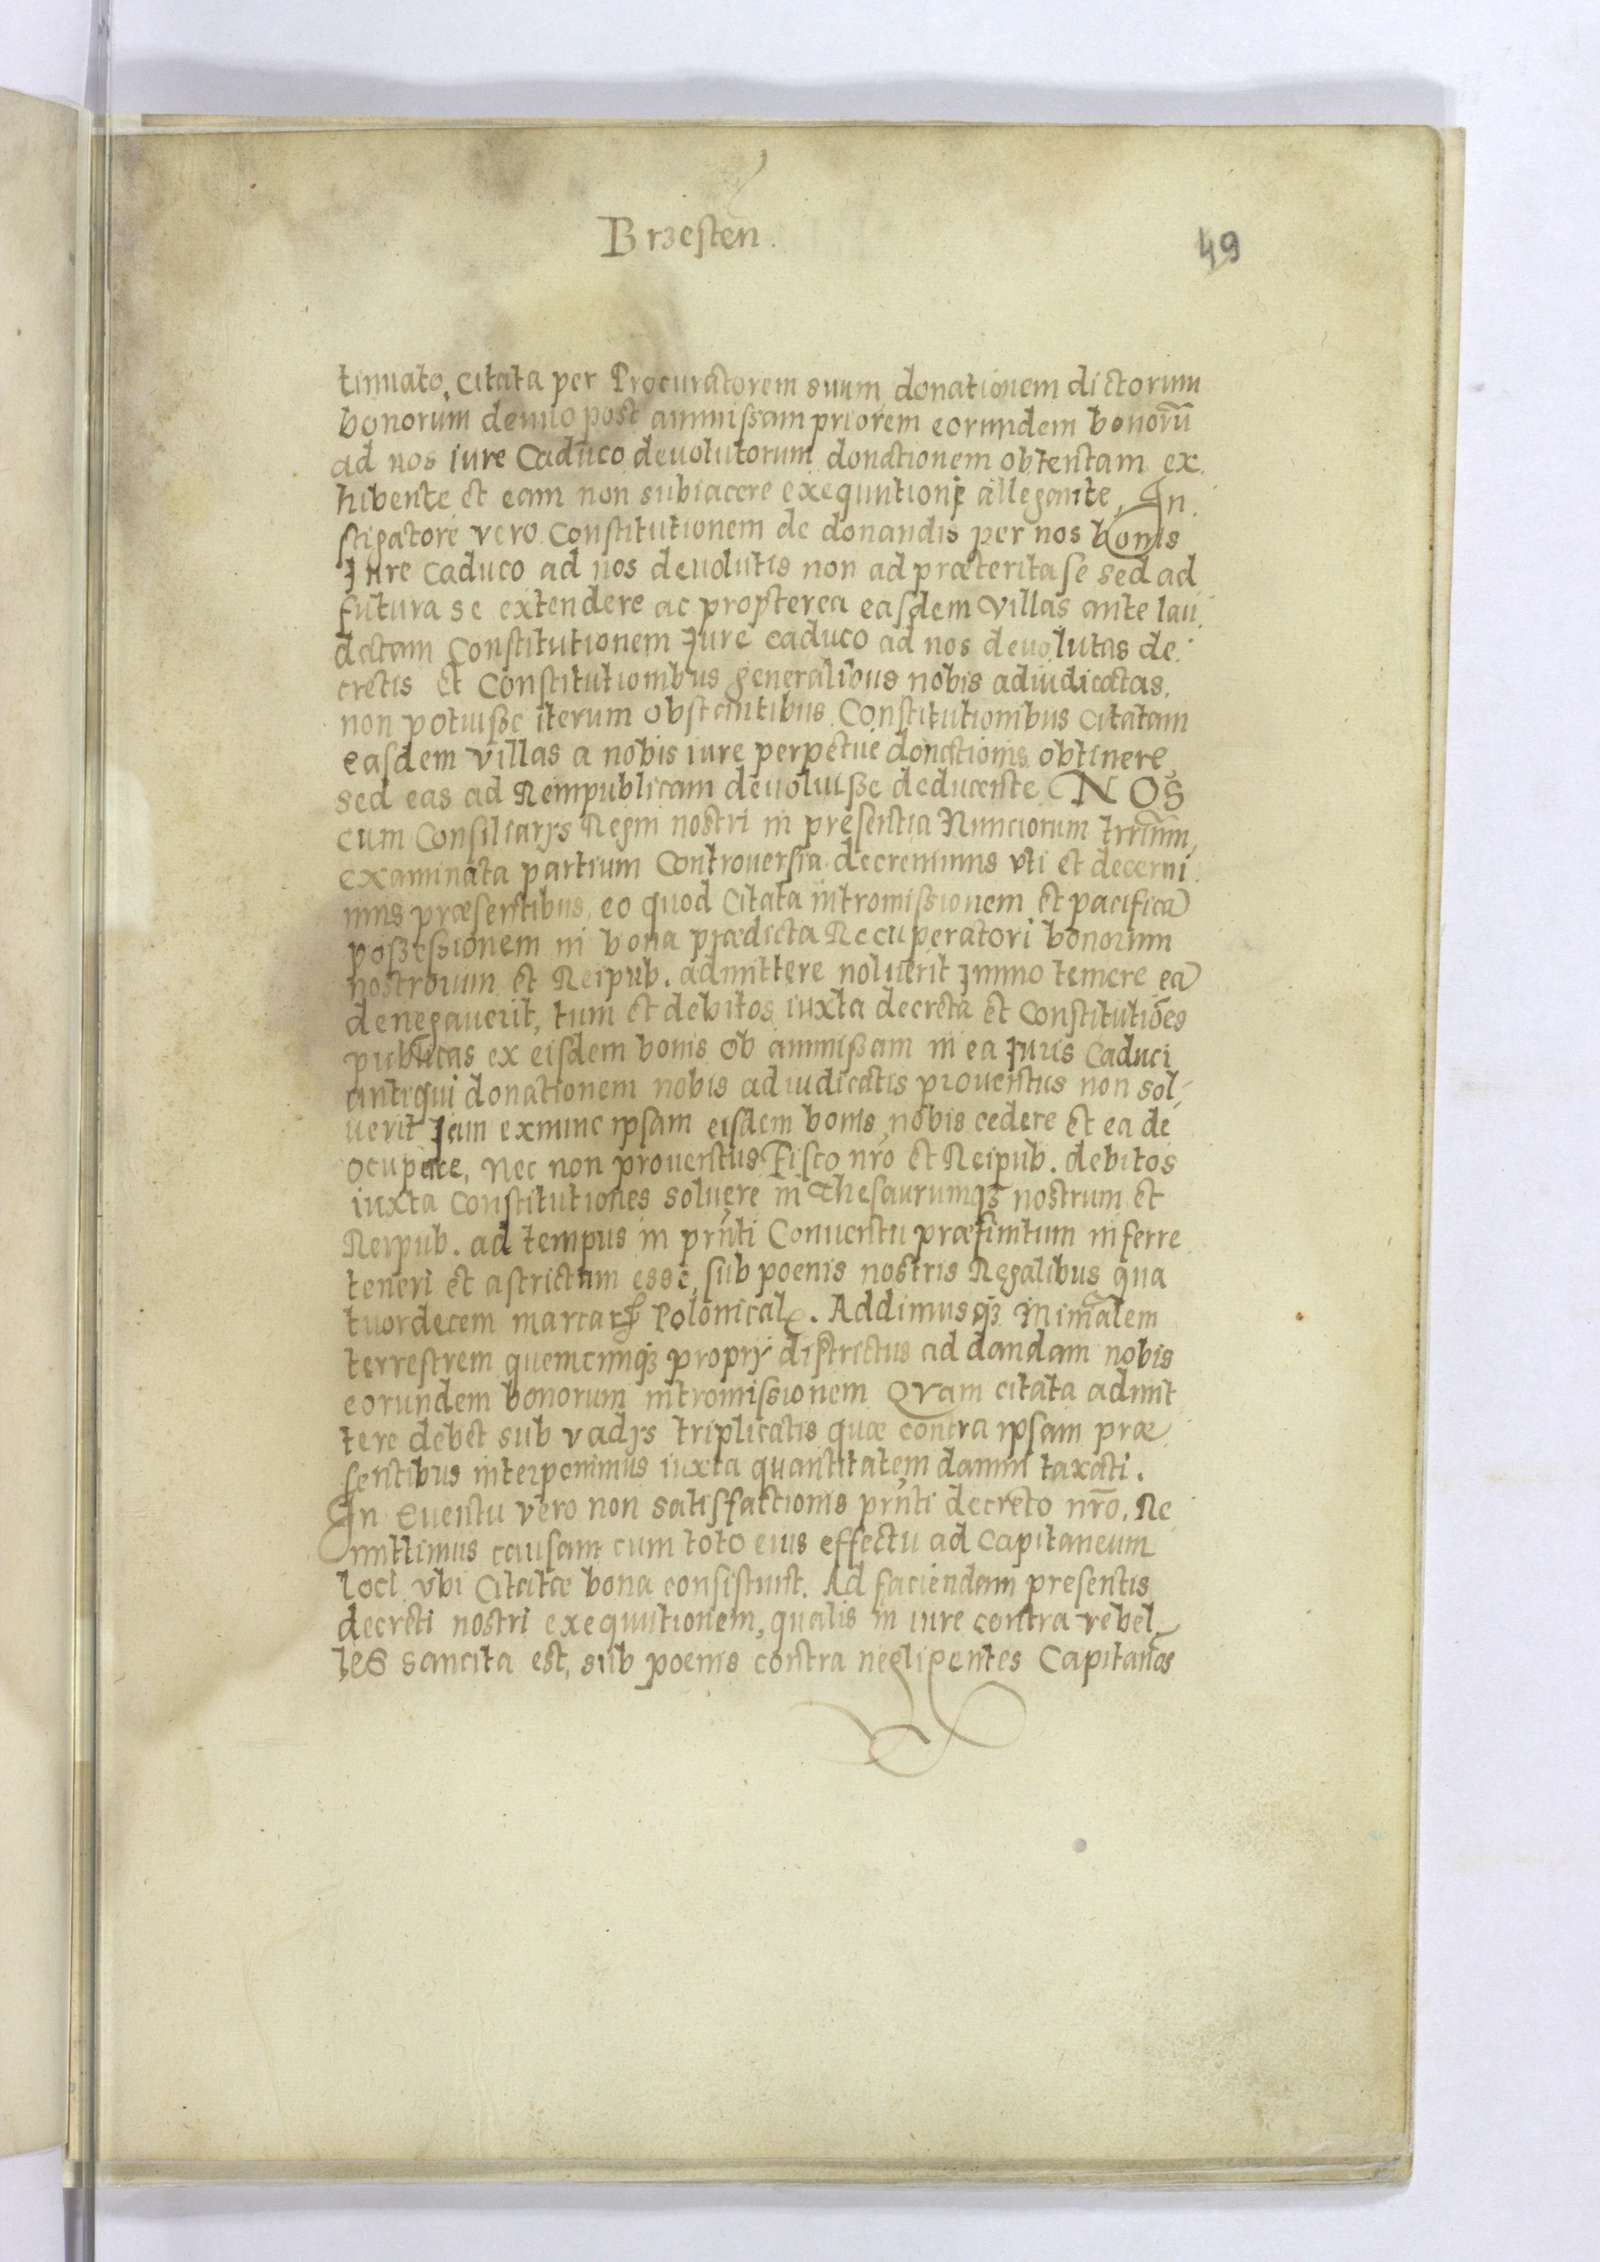 Brzesten.
49
tinuato, citata per Procuratorem suum donationem dictorum
bonorum denuo post ammissam priorem eorundem bonorū
ad nos iure Caduco deuolutorum donationem obtentam ex
hibente et eam non subiacere exequutioni allegante, In
stigatore vero Constitutionem de donandis per nos bonis
Iure Caduco ad nos deuolutis non ad præterita se sed ad
futura se extendere ac propterea easdem villas ante lau
datam Constitutionem Iure caduco ad nos deuolutas de
cretis et Constitutionibus generalibus nobis adiudicatas,
non potuisse iterum obstantibus Constitutionibus citatam
easdem villas a nobis iure perpetuæ donationis obtinere,
sed eas ad Rempublicam deuoluisse deducente. NOS
cum Consiliarijs Regni nostri in presentia Nunciorum trrium,
examinata partium Controuersia decreuimus vti et decerni
mus præsentibus, eo quod Citata intromissionem et pacificā
possessionem in bona prædicta Recuperatori bonorum
nostrorum et Reipub. admittere noluerit Immo temere eā
denegauerit, tum et debitos iuxta decreta et Constitutiōes
publicas ex eisdem bonis ob ammissam in ea Iuris Caduci
antiqui donationem nobis adiudicatis prouentus non sol-
uerit Iam exnunc ipsam eisdem bonis nobis cedere et ea de
ocupare, Nec non prouentus Fisco nrō et Reipub. debitos
iuxta Constitutiones soluere in Thesaurumq3 nostrum et
Reipub. ad tempus in prn̄ti Conuentu præfinitum inferre
teneri et astrictam esse, sub poenis nostris Regalibus qua
tuordecem marcarꝝ Polonicalꝭ. Addimusq3 Minīalem
terrestrem quemcunq3 proprij districtus ad dandam nobis
eorundem bonorum intromissionem Qvam citata admit
tere debet sub vadijs triplicatis quæ contra ipsam præ
sentibus interponimus iuxta quantitatem damni taxati.
In Euentu vero non satisfactionis prn̄ti decreto nrō. Re
mittimus causam cum toto eius effectu ad Capitaneum
loci vbi Citatæ bona consistunt. Ad faciendam presentis
decreti nostri exequutionem, qualis in iure contra rebel
les sancita est, sub poenis contra negligentes Capitān̄os